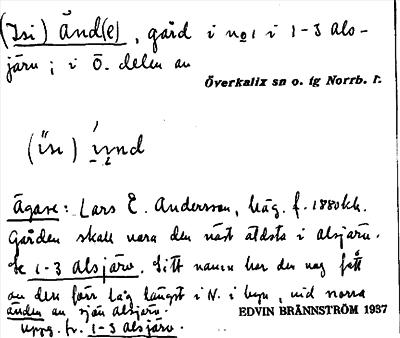 (Isi) änd(e), gård i no 1 i 1-3 Als-
järv; i Ö. delen av
Överkalix sn o. tg Norrb. l.
Ägare: Lars E. Andersson, häg. f. 1880
Gården skall vara den näst äldsta i Alsjärv.
Se 1-3 Alsjärv. Sitt namn har den nog fått
av den förr låg längst i N. i byn, vid norra
änden av sjön Alsjärv.
Uppg. fr. 1-3 Alsjärv.
EDVIN BRÄNNSTRÖM 1937